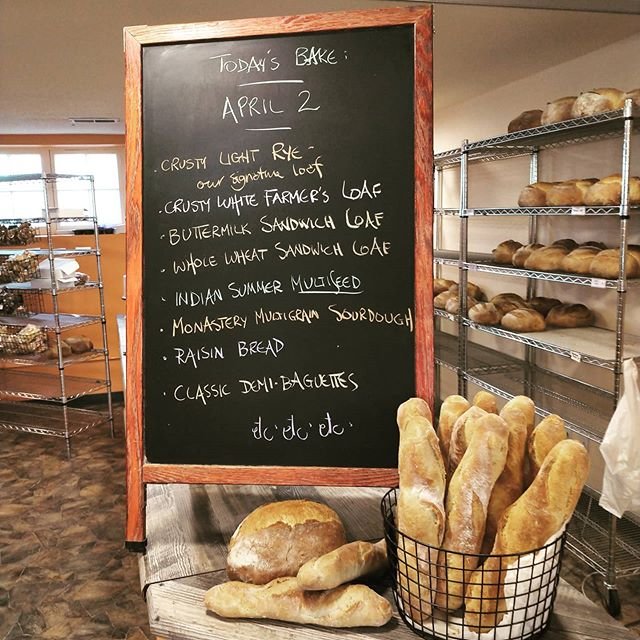 TODAY'S BAKE:
APRIL 2
· CRUSTY LIGHT RYE -
our signature loaf
· CRUSTY WHITE FARMER'S LOAF
· BUTTERMILK SANDWICH LOAF
· WHOLE WHEAT SANDWICH LOAF
· INDIAN SUMMER MULTISEED
· MONASTERY MULTIGRAIN SOURDOUGH
· RAISIN BREAD
· CLASSIC DEMI-BAGUETTES
etc· etc· etc·